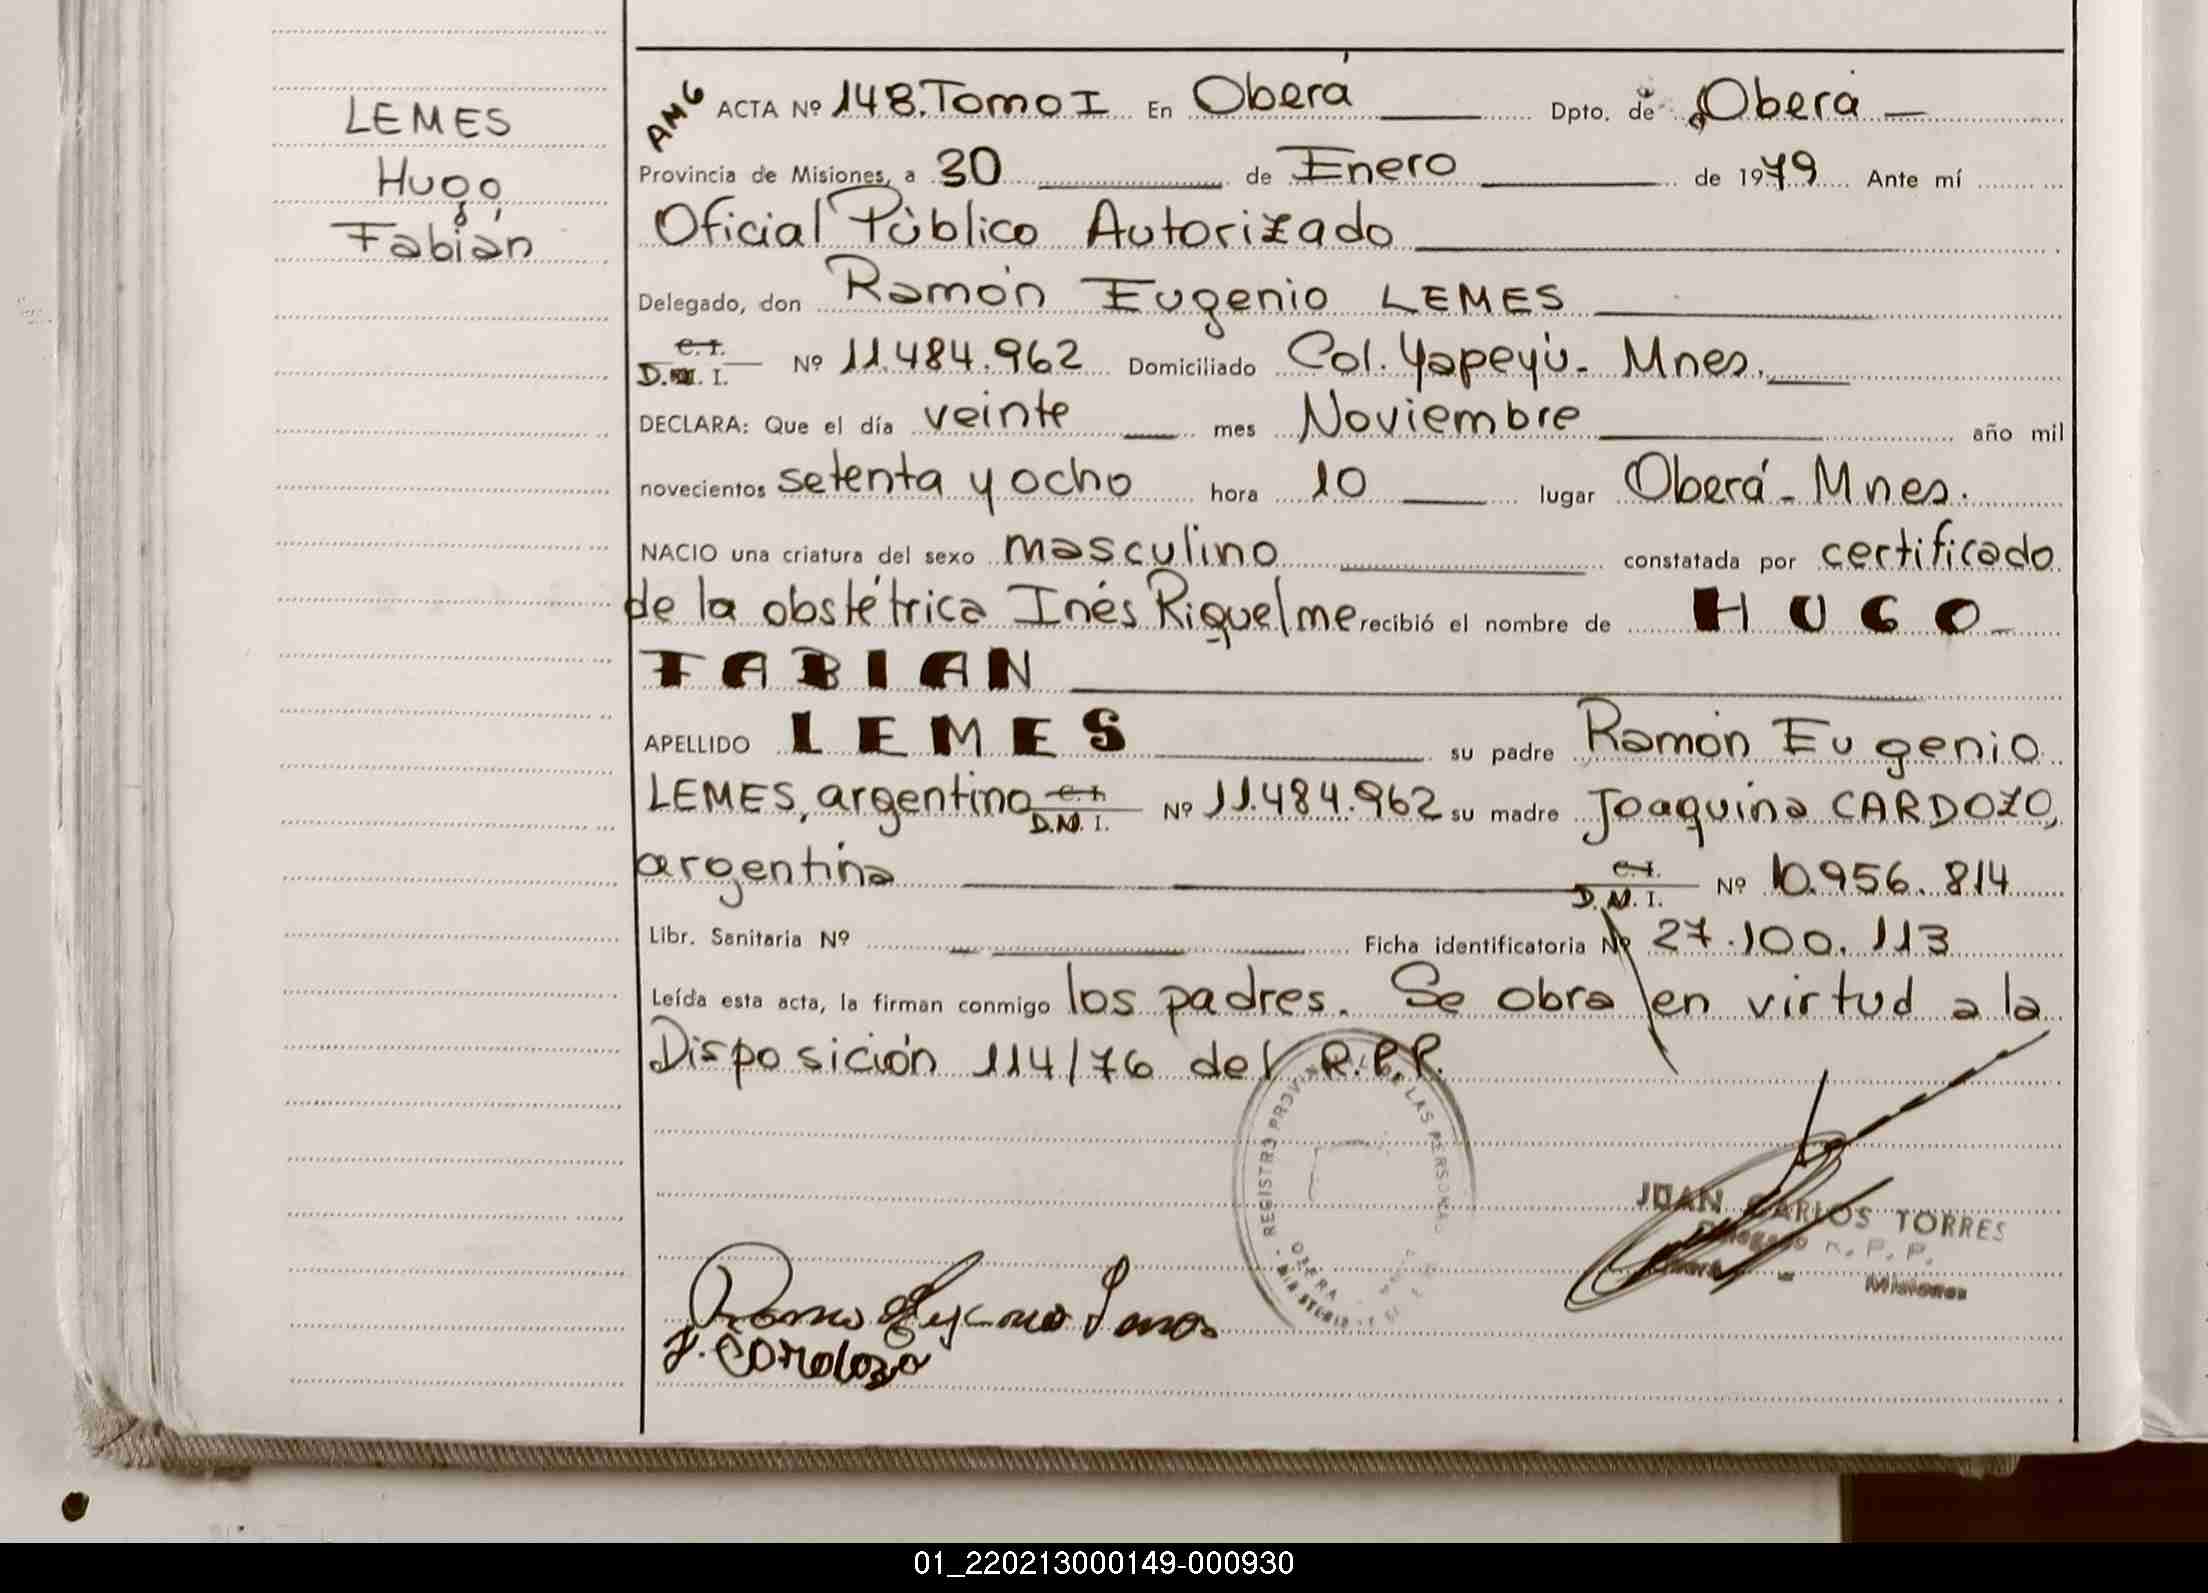 LEMES
Hugo
Fabián
AMG ACTA Nº 148. Tomo I En Oberá Dpto. de Oberá
Provincia de Misiones, a 30 de Enero de 1979 Ante mí
Oficial Público Autorizado
Delegado, don Ramón Eugenio LEMES
C.I. D.N.I. Nº 11.484.962 Domiciliado Col. Yapeyú - Mnes.
DECLARA: Que el día veinte mes Noviembre año mil
novecientos setenta y ocho hora 10 lugar Oberá - Mnes.
NACIO una criatura del sexo masculino constatada por certificado
de la obstétrica Inés Riquelme recibió el nombre de HUGO
FABIAN
APELLIDO LEMES su padre Ramón Eugenio
LEMES, argentino C.I. D.N.I. Nº 11.484.962 su madre Joaquina CARDOZO,
argentina C.I. D.N.I. Nº 10.956.814
Libr. Sanitaria Nº Ficha identificatoria Nº 27.100.113
Leída esta acta, la firman conmigo los padres. Se obra en virtud a la
Disposición 114/76 del R.P.P.
REGISTRO PROVINCIAL DE LAS PERSONAS
OBERA
JUAN CARLOS TORRES
Delegado R. P. P.
Misiones
J. Cardozo
01_220213000149-000930